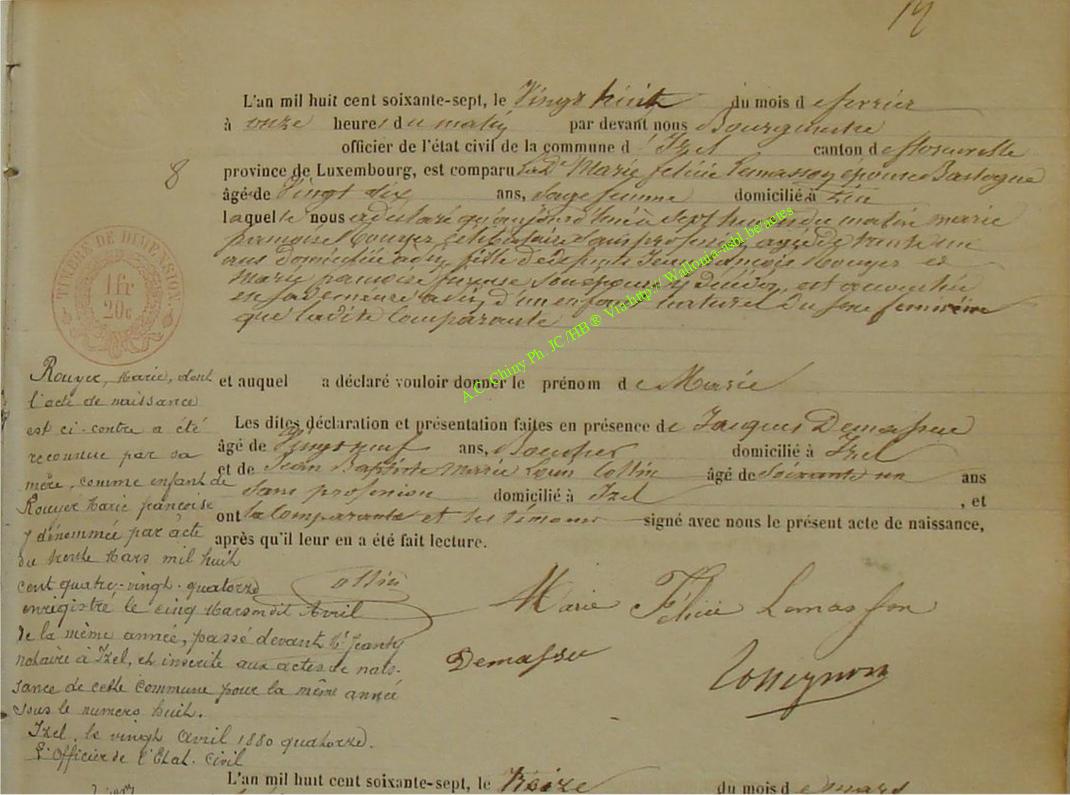 19
L'an mil huit cent soixante-sept, le Vingt huit du mois de fevrier
à onze heures du matin par devant nous Bourgmestre
officier de l'état civil de la commune d'Izel canton de florenville
8
province de Luxembourg, est comparu la De Marie félicie Lemasson épouse Bastogne
âgé de Vingt dix ans, Sage femme domicilié à Izel
laquelle nous a déclaré qu'aujourd'hui à sept heures du matin marie
françoise Rouyer célibataire Sans profession agée de trente un
ans domiciliée à Izel, fille de Jean françois Rouyer et
Marie françoise est accouchée
en sa demeure à Izel, d'un enfant naturel du sexe feminin
que ladite Comparante
TIMBRE DE DIMENSION.
1fr
20c
et auquel a déclaré vouloir donner le prénom de Marie
Les dites déclaration et présentation faites en présence de Jacques Demasseu
âgé de Vingt neuf ans, Boucher domicilié à Izel
et de Jean Baptiste Marie Louis Collin âgé de Soixante un ans
Sans profession domicilié à Izel , et
ont la Comparante et les témoins signé avec nous le présent acte de naissance,
après qu'il leur en a été fait lecture.
Collin
Marie Félicie Lemasson
Demasseu
Rossignon
Rouyer, Marie, dont
l'acte de naissance
est ci-contre a été
reconnue par sa
mère, comme enfant de
Rouyer Marie françoise
y dénommée par acte
du trente Mars mil huit
cent quatre-vingt-quatorze
enregistré le cinq Avril
de la même année, passé devant Me Jeanty
notaire à Izel, et inscrite aux actes de nais-
sance de cette commune pour la même année
sous le numero huit.
Izel, le vingt Avril 1880 quatorze.
L'Officier de l'Etat-Civil
L'an mil huit cent soixante-sept, le treize du mois de mars
A.C. Chiny Ph. JC /HB ® Via http:// Wallonia-asbl.be actes